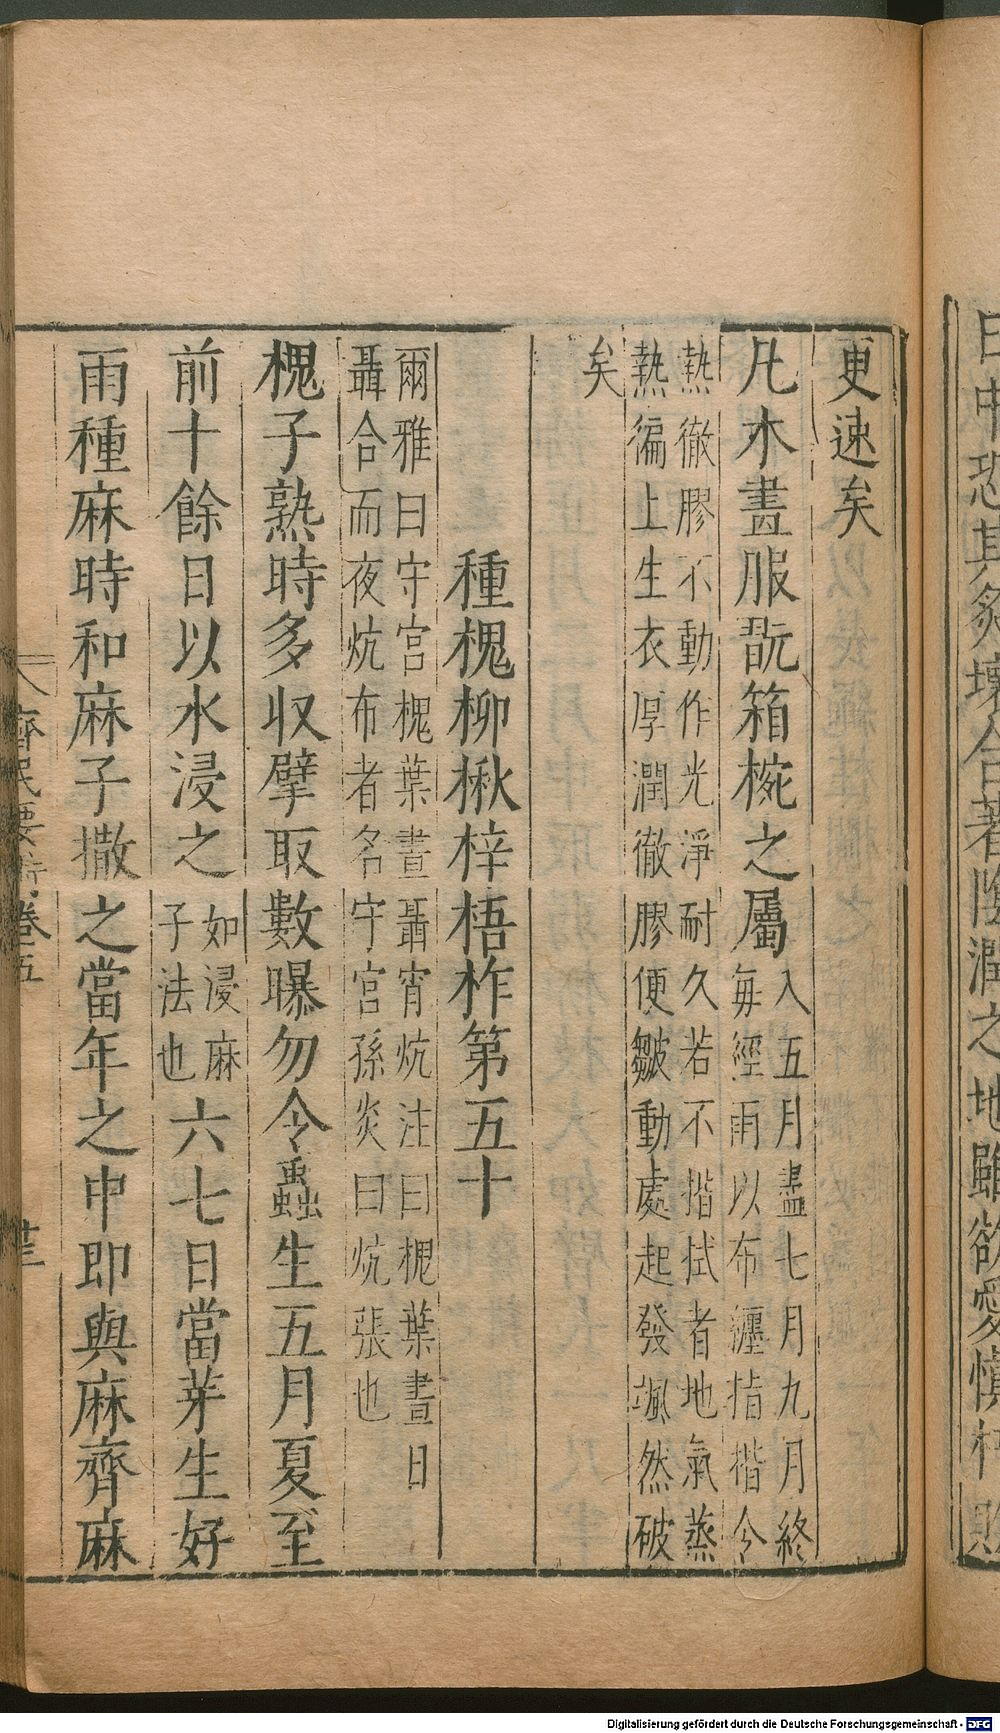 更速矣
凡木畫服翫箱椀之屬入五月盡七月九月終
每經雨以布纏指楷令
熱徹膠不動作光淨耐久若不揩拭者地氣蒸
熱徧上生衣厚潤徹膠便皺動處起發颯然破
矣
種槐柳楸梓梧柞第五十
爾雅曰守宮槐葉晝聶宵炕注曰槐葉晝日
聶合而夜炕布者名守宮孫炎曰炕張也
槐子熟時多収擘取數曝勿令蟲生五月夏至
前十餘日以水浸之如浸麻
子法也六七日當芽生好
雨種麻時和麻子撒之當年之中即與麻齊麻
齊民要術卷五
日中恐其炙壞合著陰潤之地雖欲愛慎朽敗
Digitalisierung gefördert durch die Deutsche Forschungsgemeinschaft - DFG